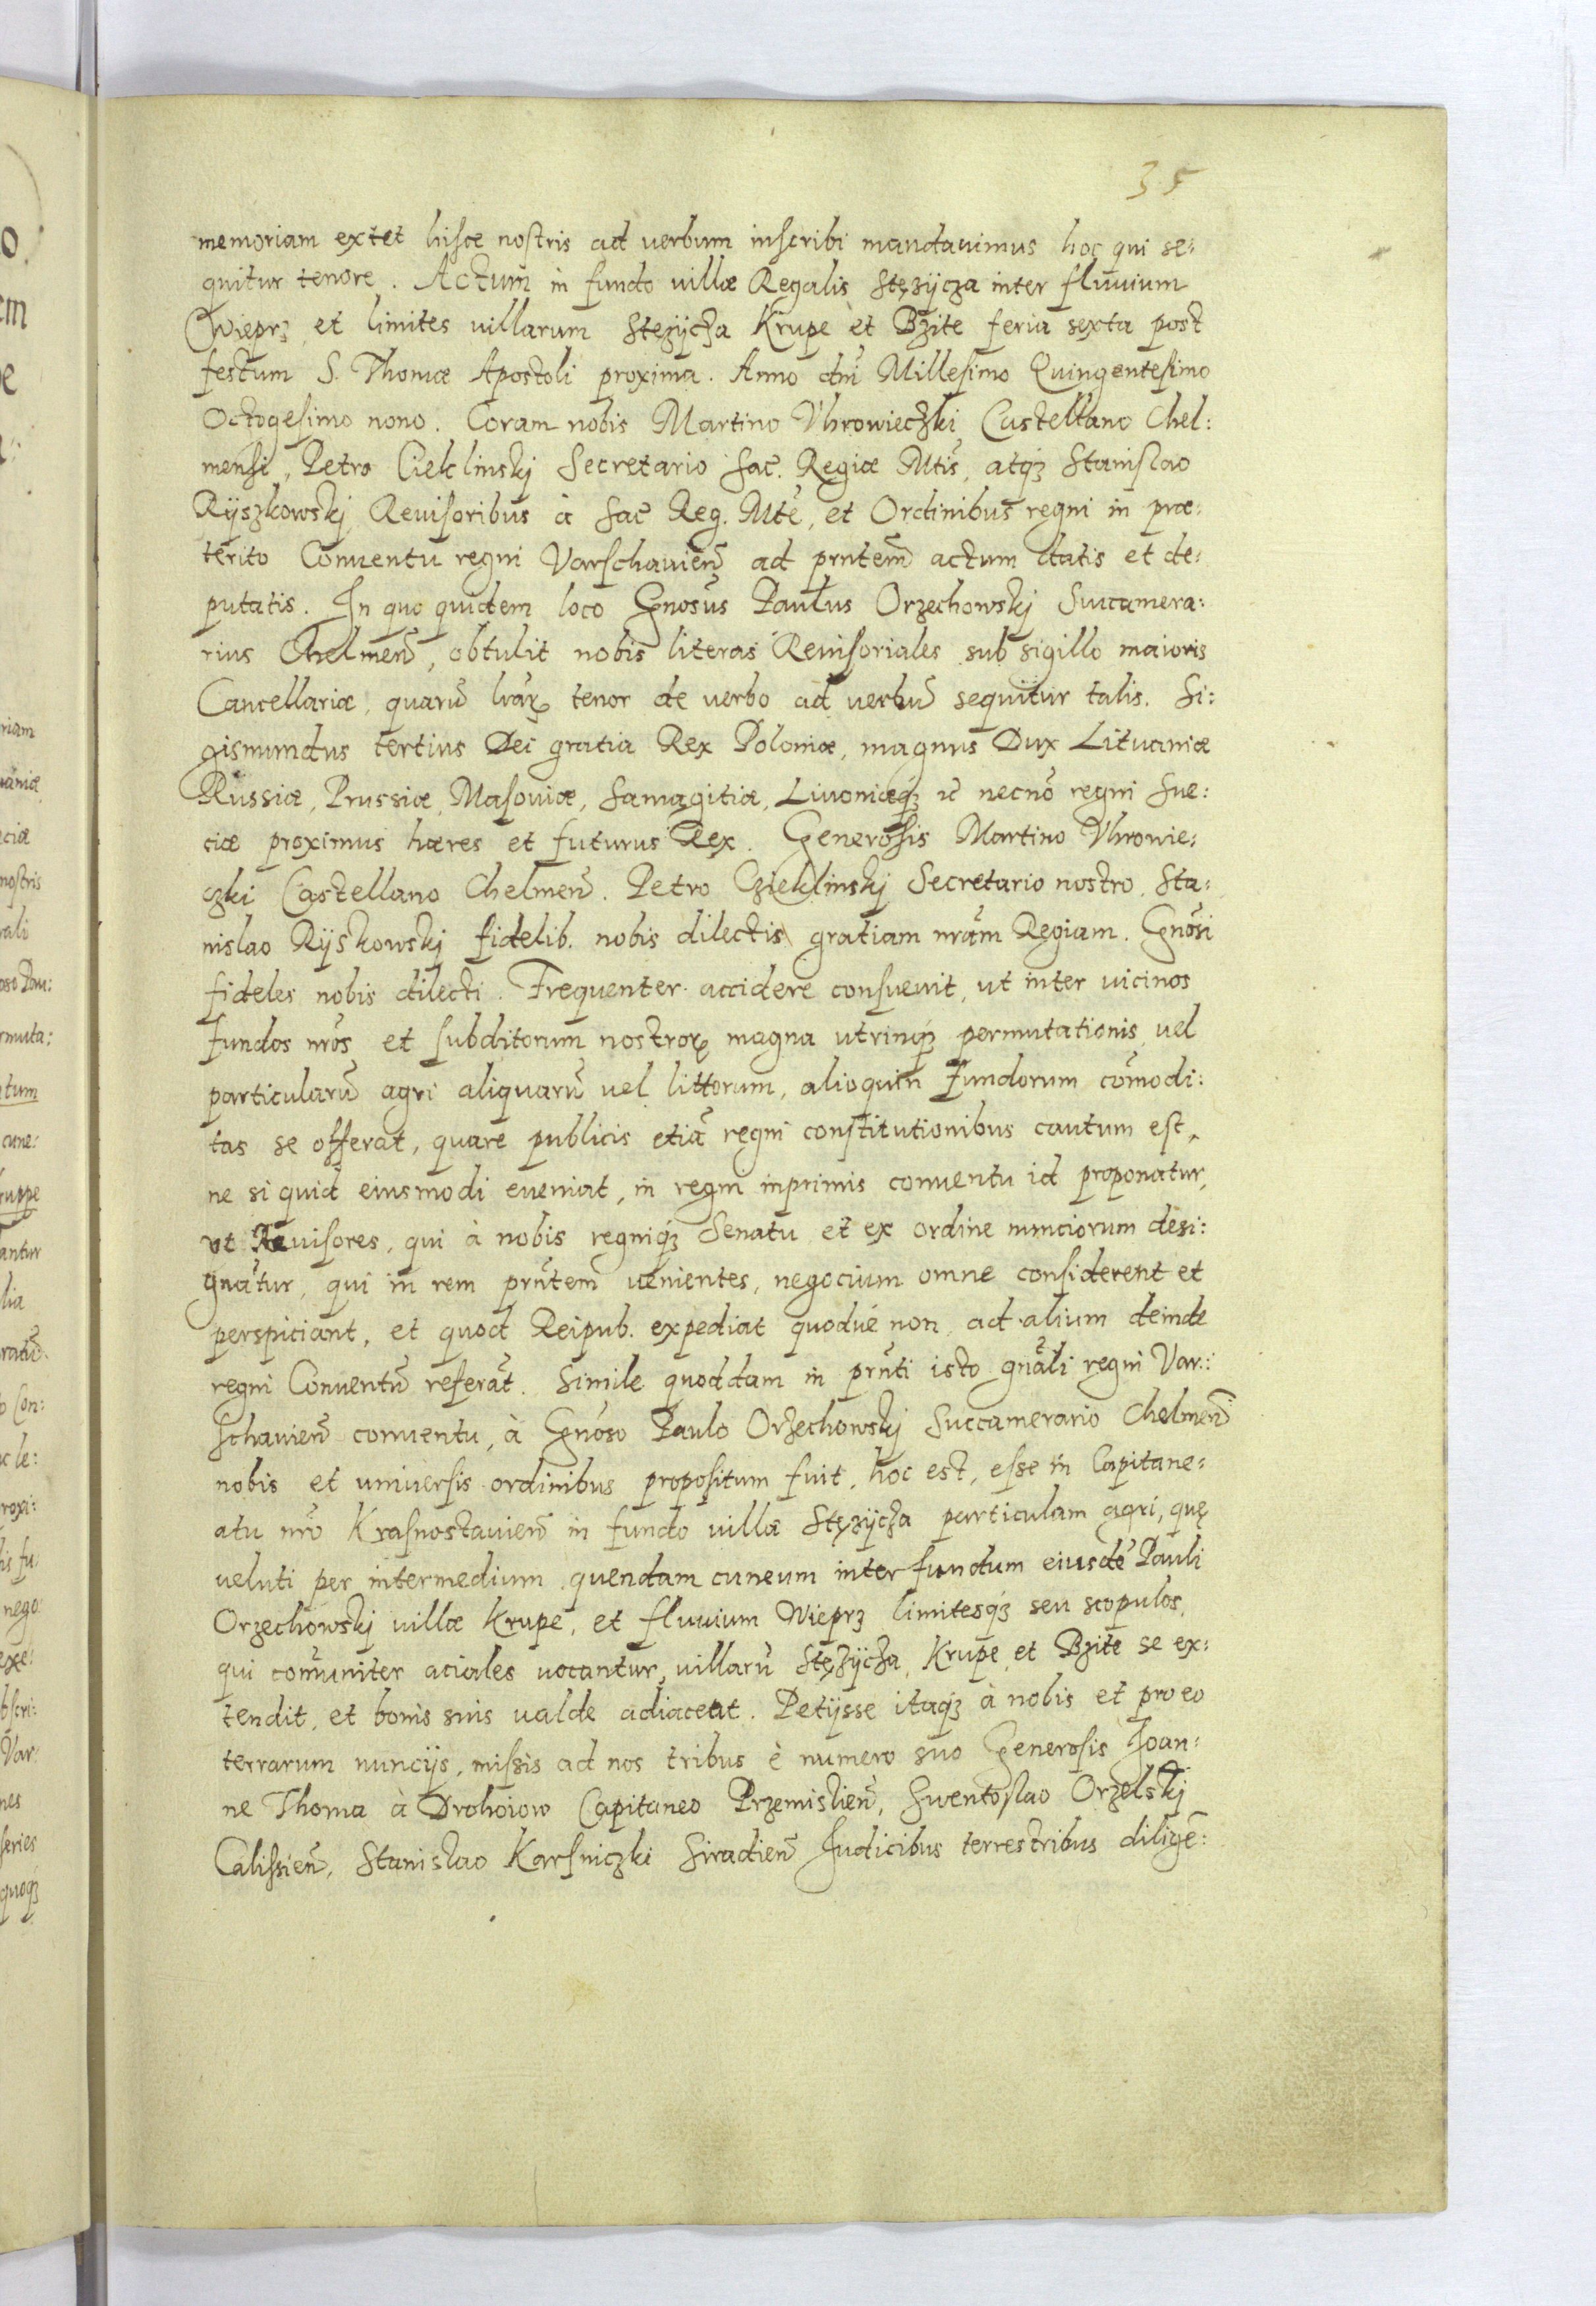 35
memoriam extet hisce nostris ad verbum inscribi mandauimus hoc qui se:
quitur tenore. Actum in fundo villæ Regalis Stężÿcza inter fluuium
Wieprz, et limites villarum Stężÿcza Krupe et Bzite feria sexta post
festum S. Thomæ Apostoli proxima. Anno dni Millesimo Quingentesimo
Octogesimo nono. Coram nobis Martino Vhrowieczki Castellano Chel:
mensi, Petro Cieklinskj Secretario Sac. Regiæ Mtis, atqz Stanislao
Rÿszkowskj Reuisoribus à Sac Reg. Mte, et Ordinibus regni in præ:
terito Conuentu regni Varschauień ad prntem actum datis et de:
putatis. In quo quidem loco Gnosus Paulus Orzechowskj Succamera:
rius Chelmeń, obtulit nobis literas Reuisoriales sub sigillo maioris
Cancellariæ, quarū lrarꝝ tenor de verbo ad verbū sequitur talis. Si:
gismundus tertius Dei gratia Rex Poloniæ, magnus Dux Lituaniæ
Russiæ, Prussiæ, Masouiæ, Samagitiæ, Liuoniæqz ꝛc necnō regni Sue:
ciæ proximus hæres et futurus Rex. Generosis Martino Vhrowie:
czki Castellano Chelmeń. Petro Czieklinskj Secretario nostro, Sta:
nislao Rÿskowskj fidelib. nobis dilectis gratiam nrām Regiam. Gnosi
fideles nobis dilecti. Frequenter accidere consueuit, ut inter uicinos
fundos nrōs et subditorum nostrorꝝ magna utrinqz permutationis uel
particularū agri aliquarū uel littorum, alioquin fundorum cōmodi:
tas se offerat, quare publicis etiā regni constitutionibus cautum est,
ne si quid eiusmodi eueniat, in regni inprimis conuentu id proponatur,
ut Reuisores, qui à nobis regniqz Senatu et ex ordine nunciorum desi:
gnātur, qui in rem prntem uenientes, negocium omne considerent et
perspiciant, et quod Reipub. expediat quodue non, ad alium deinde
regni Conuentū referāt. Simile quoddam in prnti isto gnāli regni Var:
schauień conuentu, à Gnoso Paulo Orzechowskj Succamerario Chelmeń
nobis et uniuersis ordinibus propositum fuit, hoc est, esse in Capitane:
atu nrō Krasnostauień in fundo villæ Stężÿcza particulam agri, quę
ueluti per intermedium quendam cuneum inter fundum eiusdē Pauli
Orzechowskj villæ Krupe, et fluuium Wieprz limitesqz seu scopulos,
qui comūniter aciales uocantur, villarū Stężÿcza, Krupe, et Bzite se ex:
tendit, et bonis suis ualde adiaceat. Petÿsse itaqz à nobis et pro eo
terrarum nuncÿs, missis ad nos tribus è numero suo Generosis Joan:
ne Thoma à Drohoiow Capitaneo Przemislień, Swentoslao Orzelskj
Calissień, Stanislao Karsniczki Siradień Judicibus terrestribus diligē: